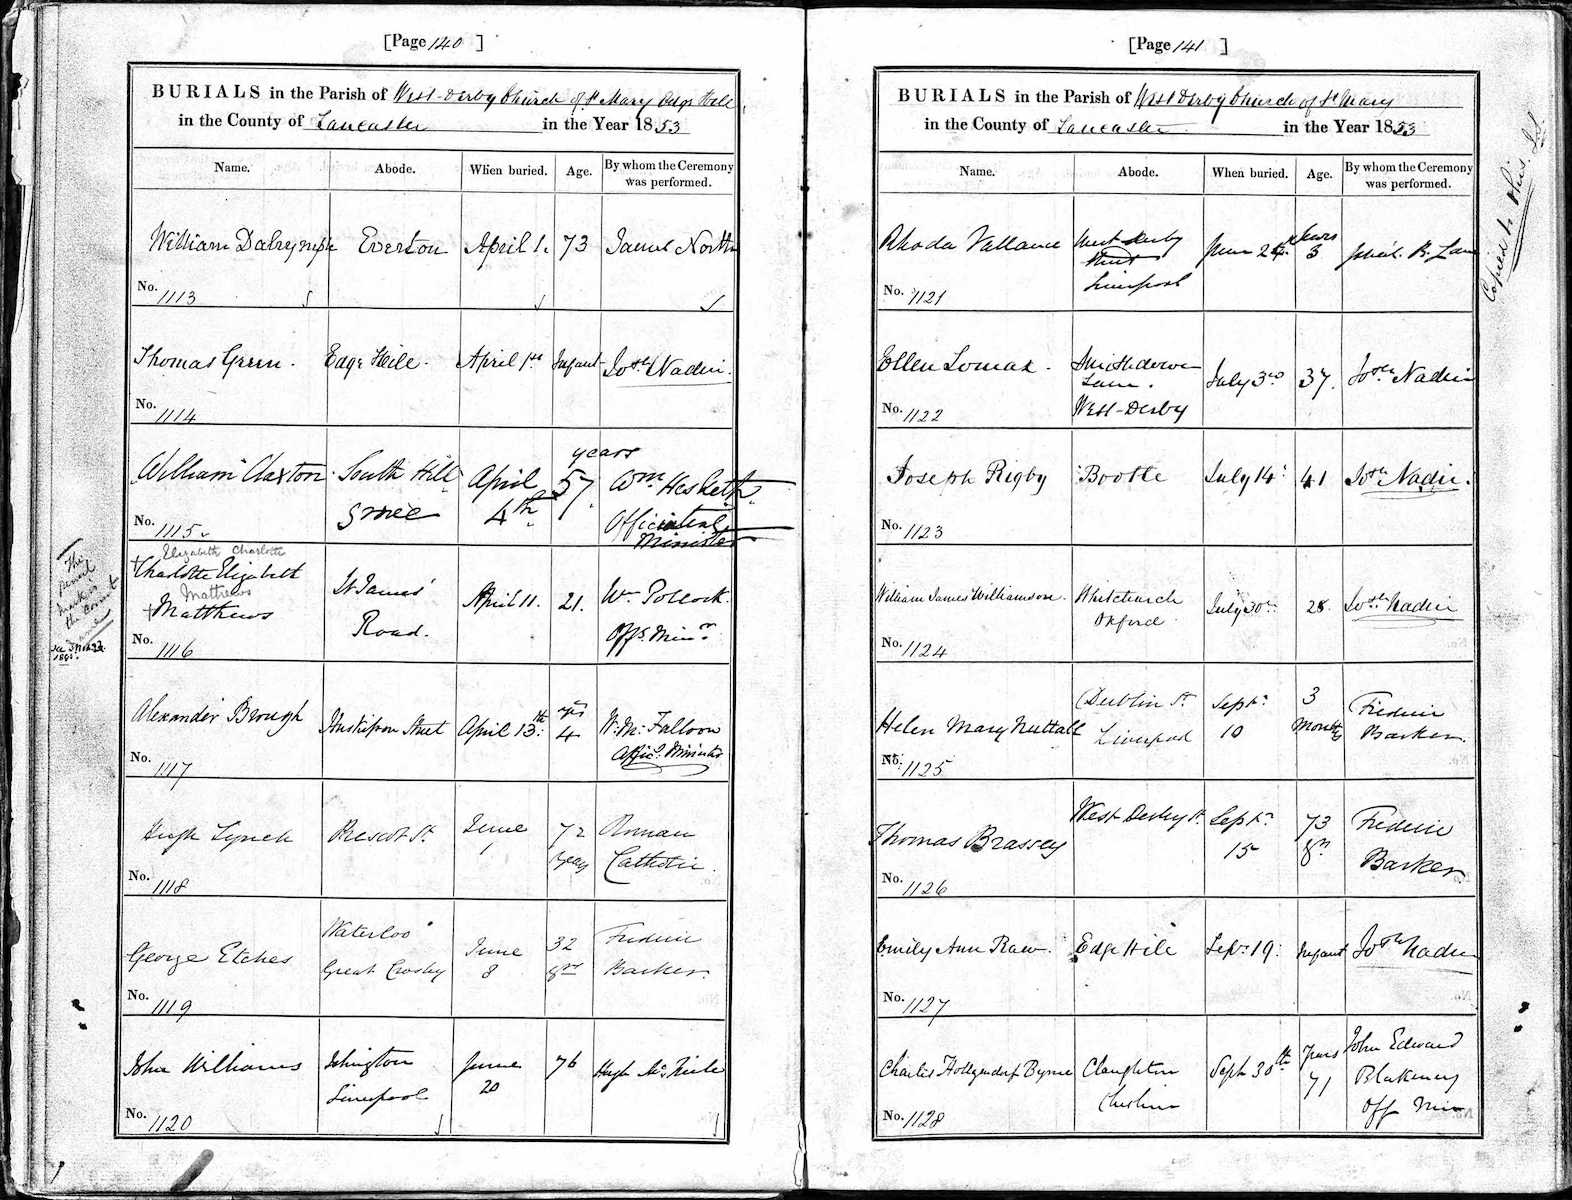 [Page 140 ]
BURIALS in the Parish of West-Derby Church of St Mary Edge Hill
in the County of Lancaster in the Year 1853
Name. Abode. When buried. Age. By whom the Ceremony was performed.
William Dalrymple Everton April 1. 73 James North
No. 1113
Thomas Green. Edge Hill. April 1st Infant Josh Nadin.
No. 1114
years
William Claxton South Hill April 57 Wm Hesketh
Grove 4th Officiating
Minister
No. 1115
Elizabeth Charlotte
Charlotte Elizabeth St James' April 11. 21. Wm Pollock.
Mathews
Matthews Road. Offg Minr
No. 1116
The
pencil
marks in
the
Alexander Brough Huskisson Street April 13th yrs 4 W. Mc Falloon
Offic. Minister
No. 1117
Hugh Lynch Prescot St June 72 Roman
1 years Catholic
No. 1118
Waterloo
George Etches Great Crosby June 8 32 yrs Frederic Barker.
No. 1119
John Williams Islington June 76 Hugh McNeile
Liverpool 20
No. 1120
[Page 141 ]
BURIALS in the Parish of West Derby Church of St Mary
in the County of Lancaster in the Year 1853
Name. Abode. When buried. Age. By whom the Ceremony was performed.
Rhoda Vallance West Derby June years
Street 3
Liverpool
No. 1121
Ellen Lomax. Smithdown July 3rd 37. Josh Nadin
Lane.
West-Derby
No. 1122
Joseph Rigby Bootle July 14 41 Josh Nadin.
No. 1123
William James Williamson. Whitchurch July 30 28. Josh Nadin
Oxford
No. 1124
Dublin St Sept 3 Frederic
Helen Mary Nuttall Liverpool 10 Months Barker.
No. 1125
West Derby St Sept 73 Frederic
Thomas Brassey 15 yrs Barker
No. 1126
Emily Ann Raw. Edge Hill Sep. 19. Infant Josh Nadin
No. 1127
Charles Hollyndorf Byrne Claughton Sept 30th Years John Edward
Cheshire 71 Blakeney
Off Min
No. 1128
Copied to this.